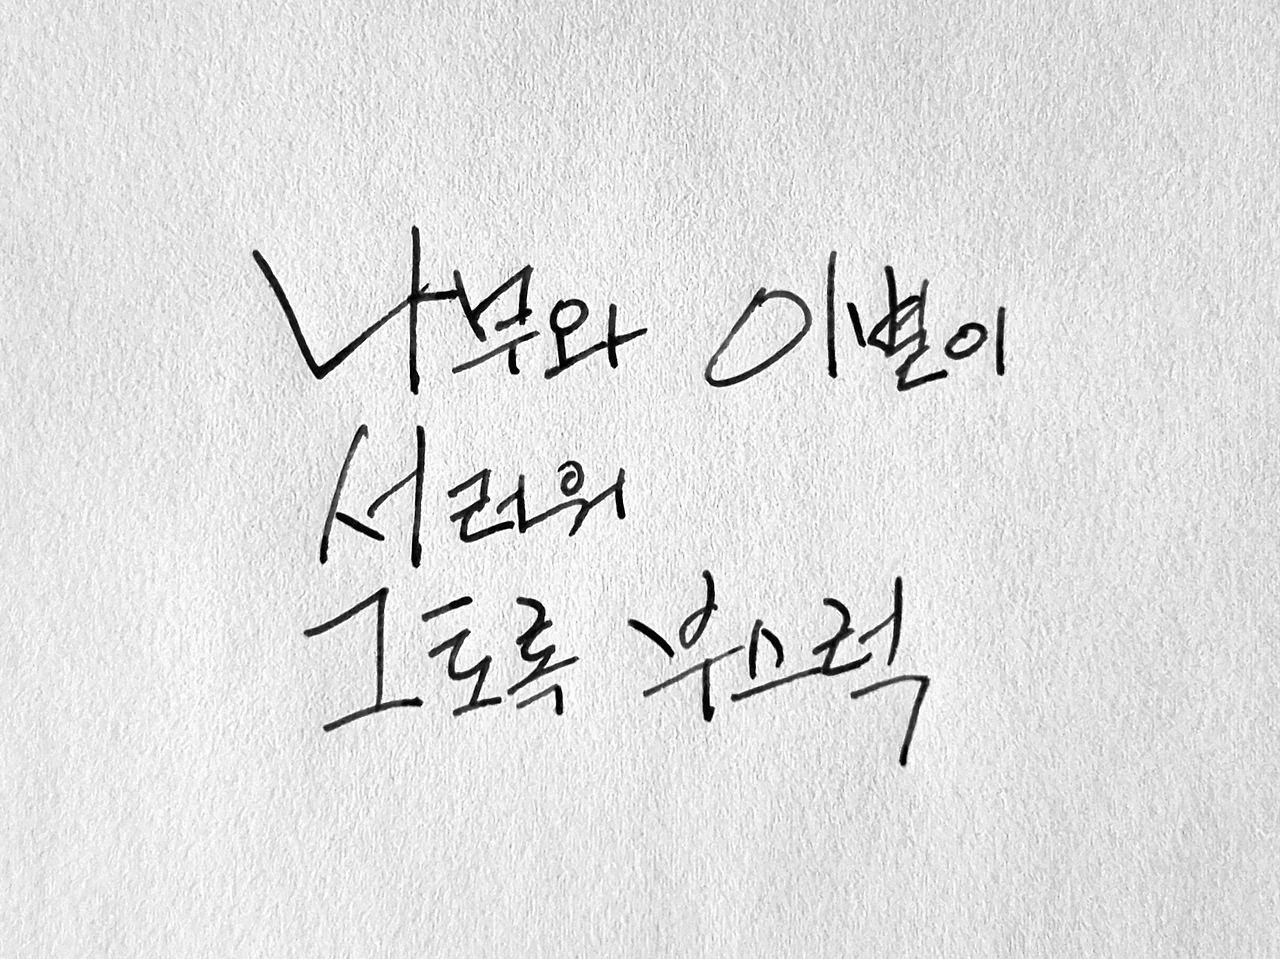 나부와 이별이
서러워
그토록 부스럭